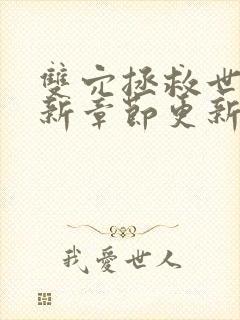 雙穴拯救世
新章節更新
我愛世人